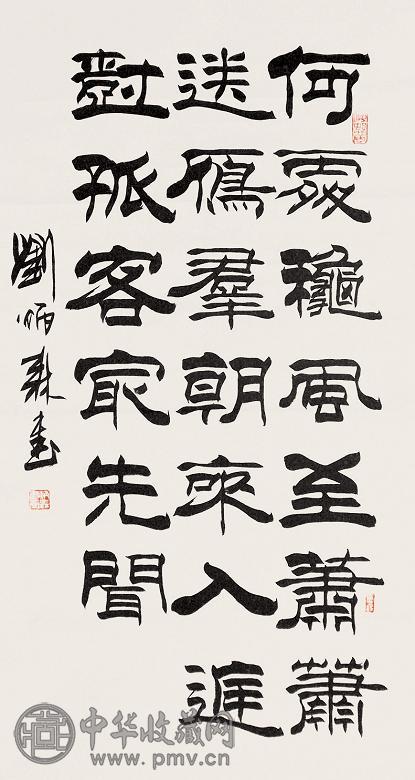 何處穐風至蕭蕭
送鴈羣朝來入庭
樹孤客冣先聞
劉炳森書
中华收藏网
www.pmv.cn